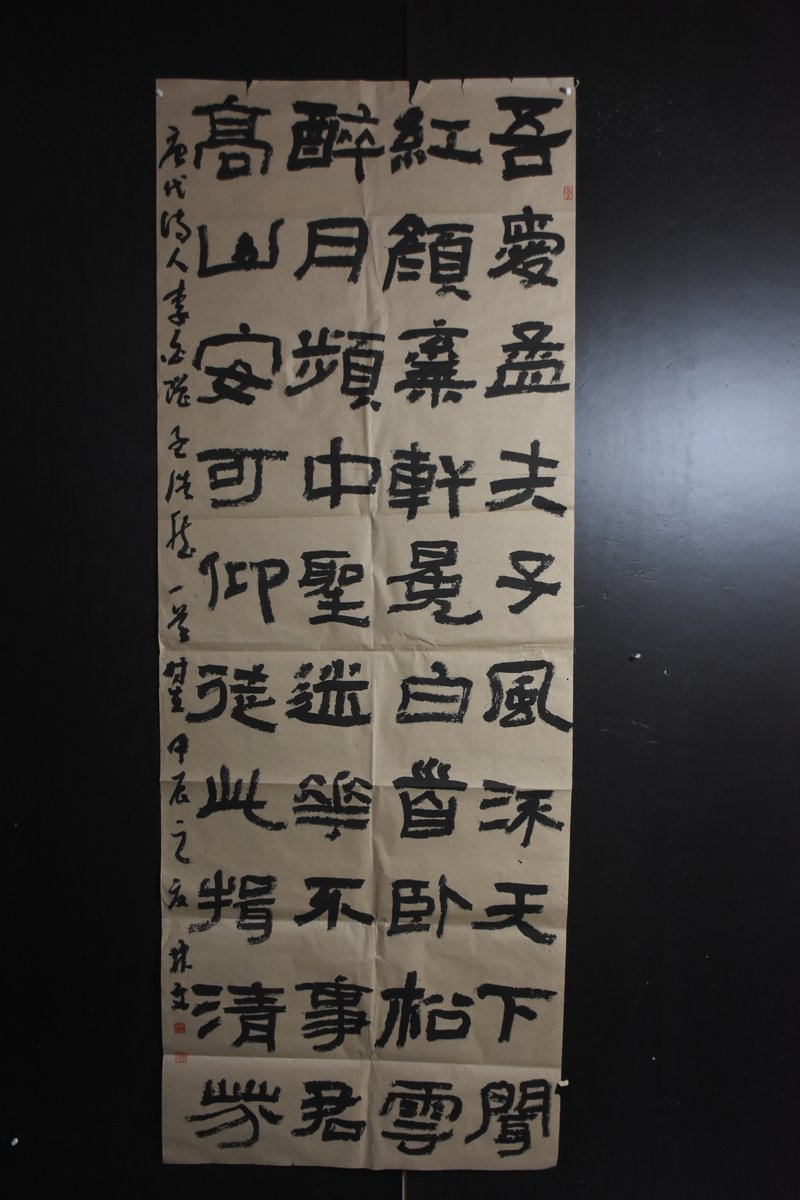 吾愛孟夫子風流天下聞
紅顏棄軒冕白首臥松雲
醉月頻中聖迷花不事君
高山安可仰徒此揖清芬
唐代詩人李白贈孟浩然一首時在甲辰之友林文